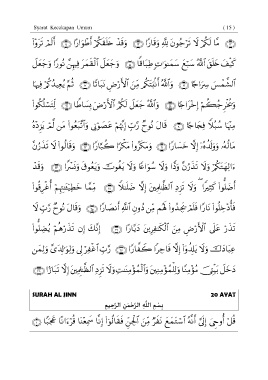 Syarat Kecakapan Umum ( 15 )
مَّا لَكُمْ لَا تَرْجُونَ لِلَّهِ وَقَارًا ۝ وَقَدْ خَلَقَكُمْ أَطْوَارًا ۝ أَلَمْ تَرَوْا۟
كَيْفَ خَلَقَ ٱللَّهُ سَبْعَ سَمَٰوَٰتٍ طِبَاقًا ۝ وَجَعَلَ ٱلْقَمَرَ فِيهِنَّ نُورًا وَجَعَلَ
ٱلشَّمْسَ سِرَاجًا ۝ وَٱللَّهُ أَنۢبَتَكُم مِّنَ ٱلْأَرْضِ نَبَاتًا ۝ ثُمَّ يُعِيدُكُمْ فِيهَا
وَيُخْرِجُكُمْ إِخْرَاجًا ۝ وَٱللَّهُ جَعَلَ لَكُمُ ٱلْأَرْضَ بِسَاطًا ۝ لِّتَسْلُكُوا۟
مِنْهَا سُبُلًا فِجَاجًا ۝ قَالَ نُوحٌ رَّبِّ إِنَّهُمْ عَصَوْنِى وَٱتَّبَعُوا۟ مَن لَّمْ يَزِدْهُ
مَالُهُۥ وَوَلَدُهُۥٓ إِلَّا خَسَارًا ۝ وَمَكَرُوا۟ مَكْرًا كُبَّارًا ۝ وَقَالُوا۟ لَا تَذَرُنَّ
ءَالِهَتَكُمْ وَلَا تَذَرُنَّ وَدًّا وَلَا سُوَاعًا وَلَا يَغُوثَ وَيَعُوقَ وَنَسْرًا ۝ وَقَدْ
أَضَلُّوا۟ كَثِيرًا ۖ وَلَا تَزِدِ ٱلظَّٰلِمِينَ إِلَّا ضَلَٰلًا ۝ مِّمَّا خَطِيٓـَٰٔتِهِمْ أُغْرِقُوا۟
فَأُدْخِلُوا۟ نَارًا فَلَمْ يَجِدُوا۟ لَهُم مِّن دُونِ ٱللَّهِ أَنصَارًا ۝ وَقَالَ نُوحٌ رَّبِّ لَا
تَذَرْ عَلَى ٱلْأَرْضِ مِنَ ٱلْكَٰفِرِينَ دَيَّارًا ۝ إِنَّكَ إِن تَذَرْهُمْ يُضِلُّوا۟
عِبَادَكَ وَلَا يَلِدُوٓا۟ إِلَّا فَاجِرًا كَفَّارًا ۝ رَّبِّ ٱغْفِرْ لِى وَلِوَٰلِدَىَّ وَلِمَن
دَخَلَ بَيْتِىَ مُؤْمِنًا وَلِلْمُؤْمِنِينَ وَٱلْمُؤْمِنَٰتِ وَلَا تَزِدِ ٱلظَّٰلِمِينَ إِلَّا تَبَارًۢا ۝
SURAH AL JINN 20 AYAT
بِسْمِ اللَّهِ الرَّحْمَٰنِ الرَّحِيمِ
قُلْ أُوحِىَ إِلَىَّ أَنَّهُ ٱسْتَمَعَ نَفَرٌ مِّنَ ٱلْجِنِّ فَقَالُوٓا۟ إِنَّا سَمِعْنَا قُرْءَانًا عَجَبًا ۝